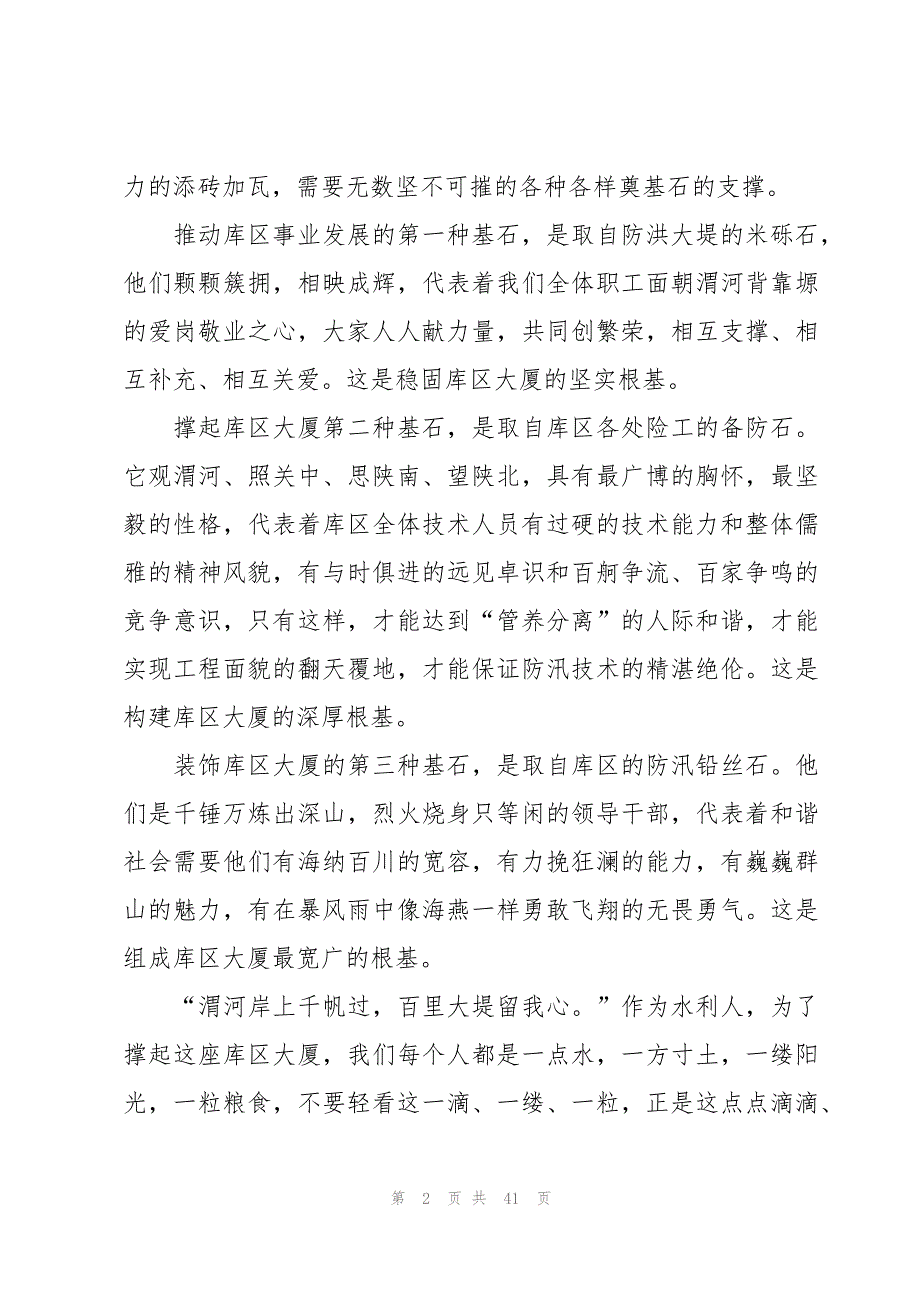 力的添砖加瓦，需要无数坚不可摧的各种各样奠基石的支撑。
推动库区事业发展的第一种基石，是取自防洪大堤的米砾石，
他们颗颗簇拥，相映成辉，代表着我们全体职工面朝渭河背靠塬
的爱岗敬业之心，大家人人献力量，共同创繁荣，相互支撑、相
互补充、相互关爱。这是稳固库区大厦的坚实根基。
撑起库区大厦第二种基石，是取自库区各处险工的备防石。
它观渭河、照关中、思陕南、望陕北，具有最广博的胸怀，最坚
毅的性格，代表着库区全体技术人员有过硬的技术能力和整体儒
雅的精神风貌，有与时俱进的远见卓识和百舸争流、百家争鸣的
竞争意识，只有这样，才能达到“管养分离”的人际和谐，才能
实现工程面貌的翻天覆地，才能保证防汛技术的精湛绝伦。这是
构建库区大厦的深厚根基。
装饰库区大厦的第三种基石，是取自库区的防汛铅丝石。他
们是千锤万炼出深山，烈火烧身只等闲的领导干部，代表着和谐
社会需要他们有海纳百川的宽容，有力挽狂澜的能力，有巍巍群
山的魅力，有在暴风雨中像海燕一样勇敢飞翔的无畏勇气。这是
组成库区大厦最宽广的根基。
“渭河岸上千帆过，百里大堤留我心。”作为水利人，为了
撑起这座库区大厦，我们每个人都是一点水，一方寸土，一缕阳
光，一粒粮食，不要轻看这一滴、一缕、一粒，正是这点点滴滴、
第 2 页 共 41 页